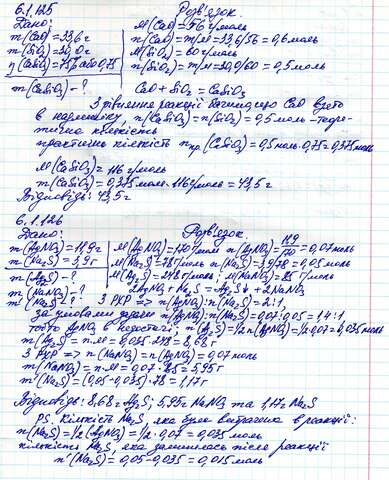 6.1.125 Розв'язок
Дано: M(CaO)=56 г/моль
m(CaO)=33,6г n(CaO)=m/M=33,6/56=0,6моль
m(SiO₂)=30,0г M(SiO₂)=60г/моль
η(CaSiO₃)=75% або 0,75 n(SiO₂)=m/M=30,0/60=0,5моль
m(CaSiO₃)-? CaO+SiO₂=CaSiO₃
З рівняння реакції бачимо, що CaO взято
в надлишку, n(CaSiO₃)=n(SiO₂)=0,5моль -теоре-
тична кількість
практична кількість nпр(CaSiO₃)=0,5моль·0,75=0,375моль
M(CaSiO₃)=116г/моль
m(CaSiO₃)=0,375моль·116г/моль=43,5г
Відповідь: 43,5г
6.1.126
Дано: Розв'язок.
m(AgNO₃)=11,9г M(AgNO₃)=170г/моль n(AgNO₃)=11,9/170=0,07моль
m(Na₂S)=3,9г M(Na₂S)=78г/моль n(Na₂S)=3,9/78=0,05моль
m(Ag₂S)-? M(Ag₂S)=248г/моль; M(NaNO₃)=85г/моль
m(NaNO₃)-? 2AgNO₃+Na₂S=Ag₂S↓+2NaNO₃
m'(Na₂S)-? З РХР => n(AgNO₃):n(Na₂S)=2:1,
за умовами задачі n(AgNO₃):n(Na₂S)=0,07:0,05=1,4:1
тобто AgNO₃ в недостачі; n(Ag₂S)=1/2n(AgNO₃)=1/2·0,07=0,035моль
m(Ag₂S)=n·M=0,035·248=8,68г
З РХР => n(NaNO₃)=n(AgNO₃)=0,07моль
m(NaNO₃)=n·M=0,07·85=5,95г
m'(Na₂S)=(0,05-0,035)·78=1,17г
Відповідь: 8,68г Ag₂S; 5,95г NaNO₃ та 1,17г Na₂S
PS. Кількість Na₂S, яка була витрачена в реакції:
n(Na₂S)=1/2(AgNO₃)=1/2·0,07=0,035моль
кількість Na₂S, яка залишилась після реакції
n'(Na₂S)=0,05-0,035=0,015моль